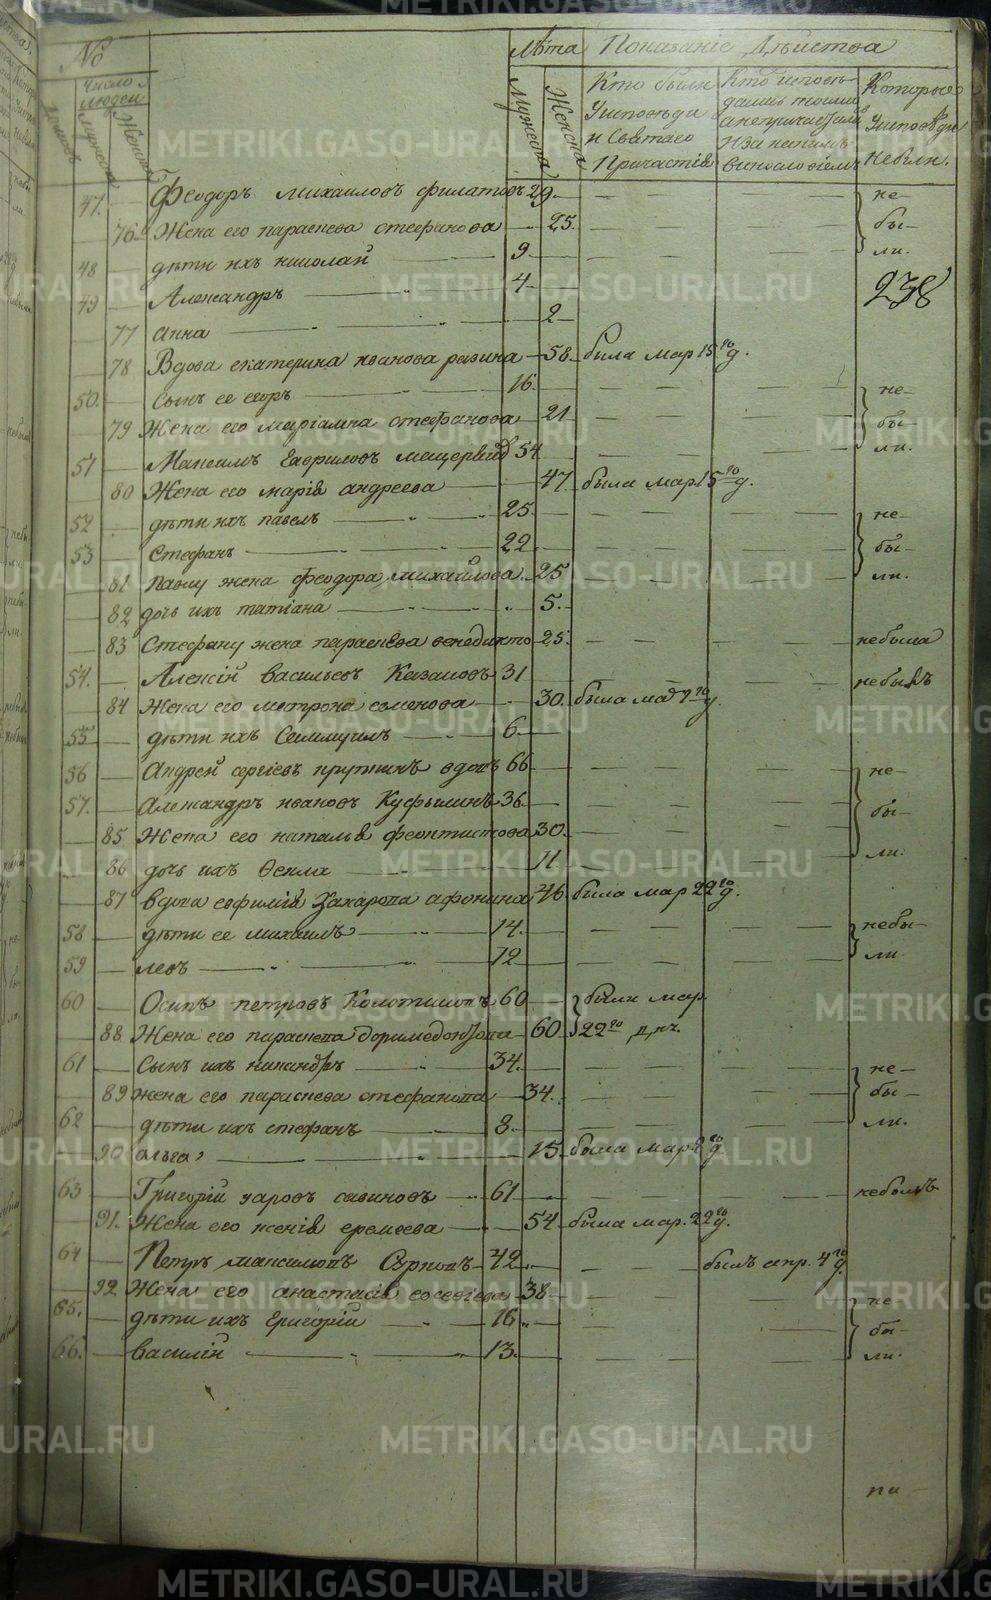 № Лѣта Показанiе Дѣйства
Число людей
домовъ
Мужеска
Женска
Мужеска
Женска
Кто были
Уисповѣди
и Святаго
Причастiя
Кто исповѣ-
дались токмо
а непричастились
Иза какимъ
винословiемъ
Которые
Уисповѣди
Небыли.
47. Феодоръ Михаиловъ Филатовъ 29
76 Жена его Параскева Стефанова 25. не-
бы-
ли.
48 дѣти ихъ Николай 9
49 Александръ 4 238
77 Анна 2
78 Вдова Екатерина Иванова Разина 58. была мар 15го д.
50. Сынъ ее Егоръ 16. не-
79 Жена его Марiамна Стефанова 21 бы-
51 Максимъ Гавриловъ 54 ли.
80 Жена его Марiя Андреева 47 была мар. 15го д.
52 дѣти ихъ Павелъ 25. не-
53 Стефанъ 22 бы-
81 Павлу жена Феодора Михайлова 25 ли.
82 дочь ихъ Татiана 5.
83 Стефану жена Параскева Венедикто 25. небыла
54. Алексiй Васильевъ Казаковъ 31 небылъ
84 Жена его Матрона Семенова 30. была мар го д.
55 дѣти ихъ Самуилъ 6.
56 Андрей Сергiевъ вдовъ 66 не-
57. Александръ Ивановъ 36. бы-
85 Жена его Наталья Феоктистова 30. ли.
86 дочь ихъ Фекла 11
87 вдова Евфимiя Захарова Афонина 46 была мар 22го д.
58 дѣти ее Михаилъ 14. небы-
59 Левъ 12 ли.
60 Осипъ Петровъ 60 были мар.
88 Жена его Параскева Доримедонтова 60 22го дня.
61 Сынъ ихъ Никандръ 34. не-
89 жена его Параскева Стефанова 34. бы-
62 дѣти ихъ Стефанъ 8. ли.
90 Ольга 15. была мар го д.
63 Григорiй Уаровъ Савиновъ 61 небылъ
91. Жена его Ксенiя Еремеева 54. была мар. 22го д.
64 Петръ Максимовъ 42 былъ апр. 4го д.
92 Жена его Анастасiя 38.
65. дѣти ихъ Григорiй 16 не-
66. Василiй 13. бы-
ли.
METRIKI.GASO-URAL.RU